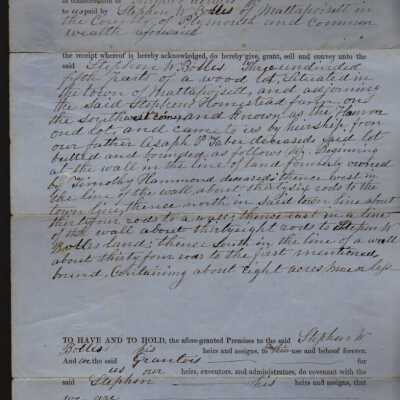 to us paid by Stephen W Bolles of Mattapoisett in
the County of Plymouth and Common
wealth aforesaid
the receipt whereof is hereby acknowledged, do hereby give, grant, sell and convey unto the
said Stephen W. Bolles Three undivided
fifth parts of a wood lot, Situated in
the town of Mattapoisett, and adjoining
the said Stephens Homestead farm on
the Southwest corner and known as the Hammond
lot, and came to us by heirship from
our father Asaph P Taber deceased said lot
butted and bounded as follows viz. Beginning
at the wall in the line of land formerly owned
by Timothy Hammond deceased; thence west in
the line of the wall about thirtysix rods to the
town line; thence north in said town line about
thirtyfour rods to a wall; thence east in a line
of the wall about thirtyeight rods to Stephen W
Bolles land; thence South in the line of a wall
about thirty four rods to the first mentioned
bound. Containing about Eight acres more or less
TO HAVE AND TO HOLD, the afore-granted Premises to the said Stephen W
Bolles his heirs and assigns, to his use and behoof forever.
And we the said Grantors for
us our heirs, executors and administrators, do covenant with the
said Stephen his heirs and assigns, that
we are